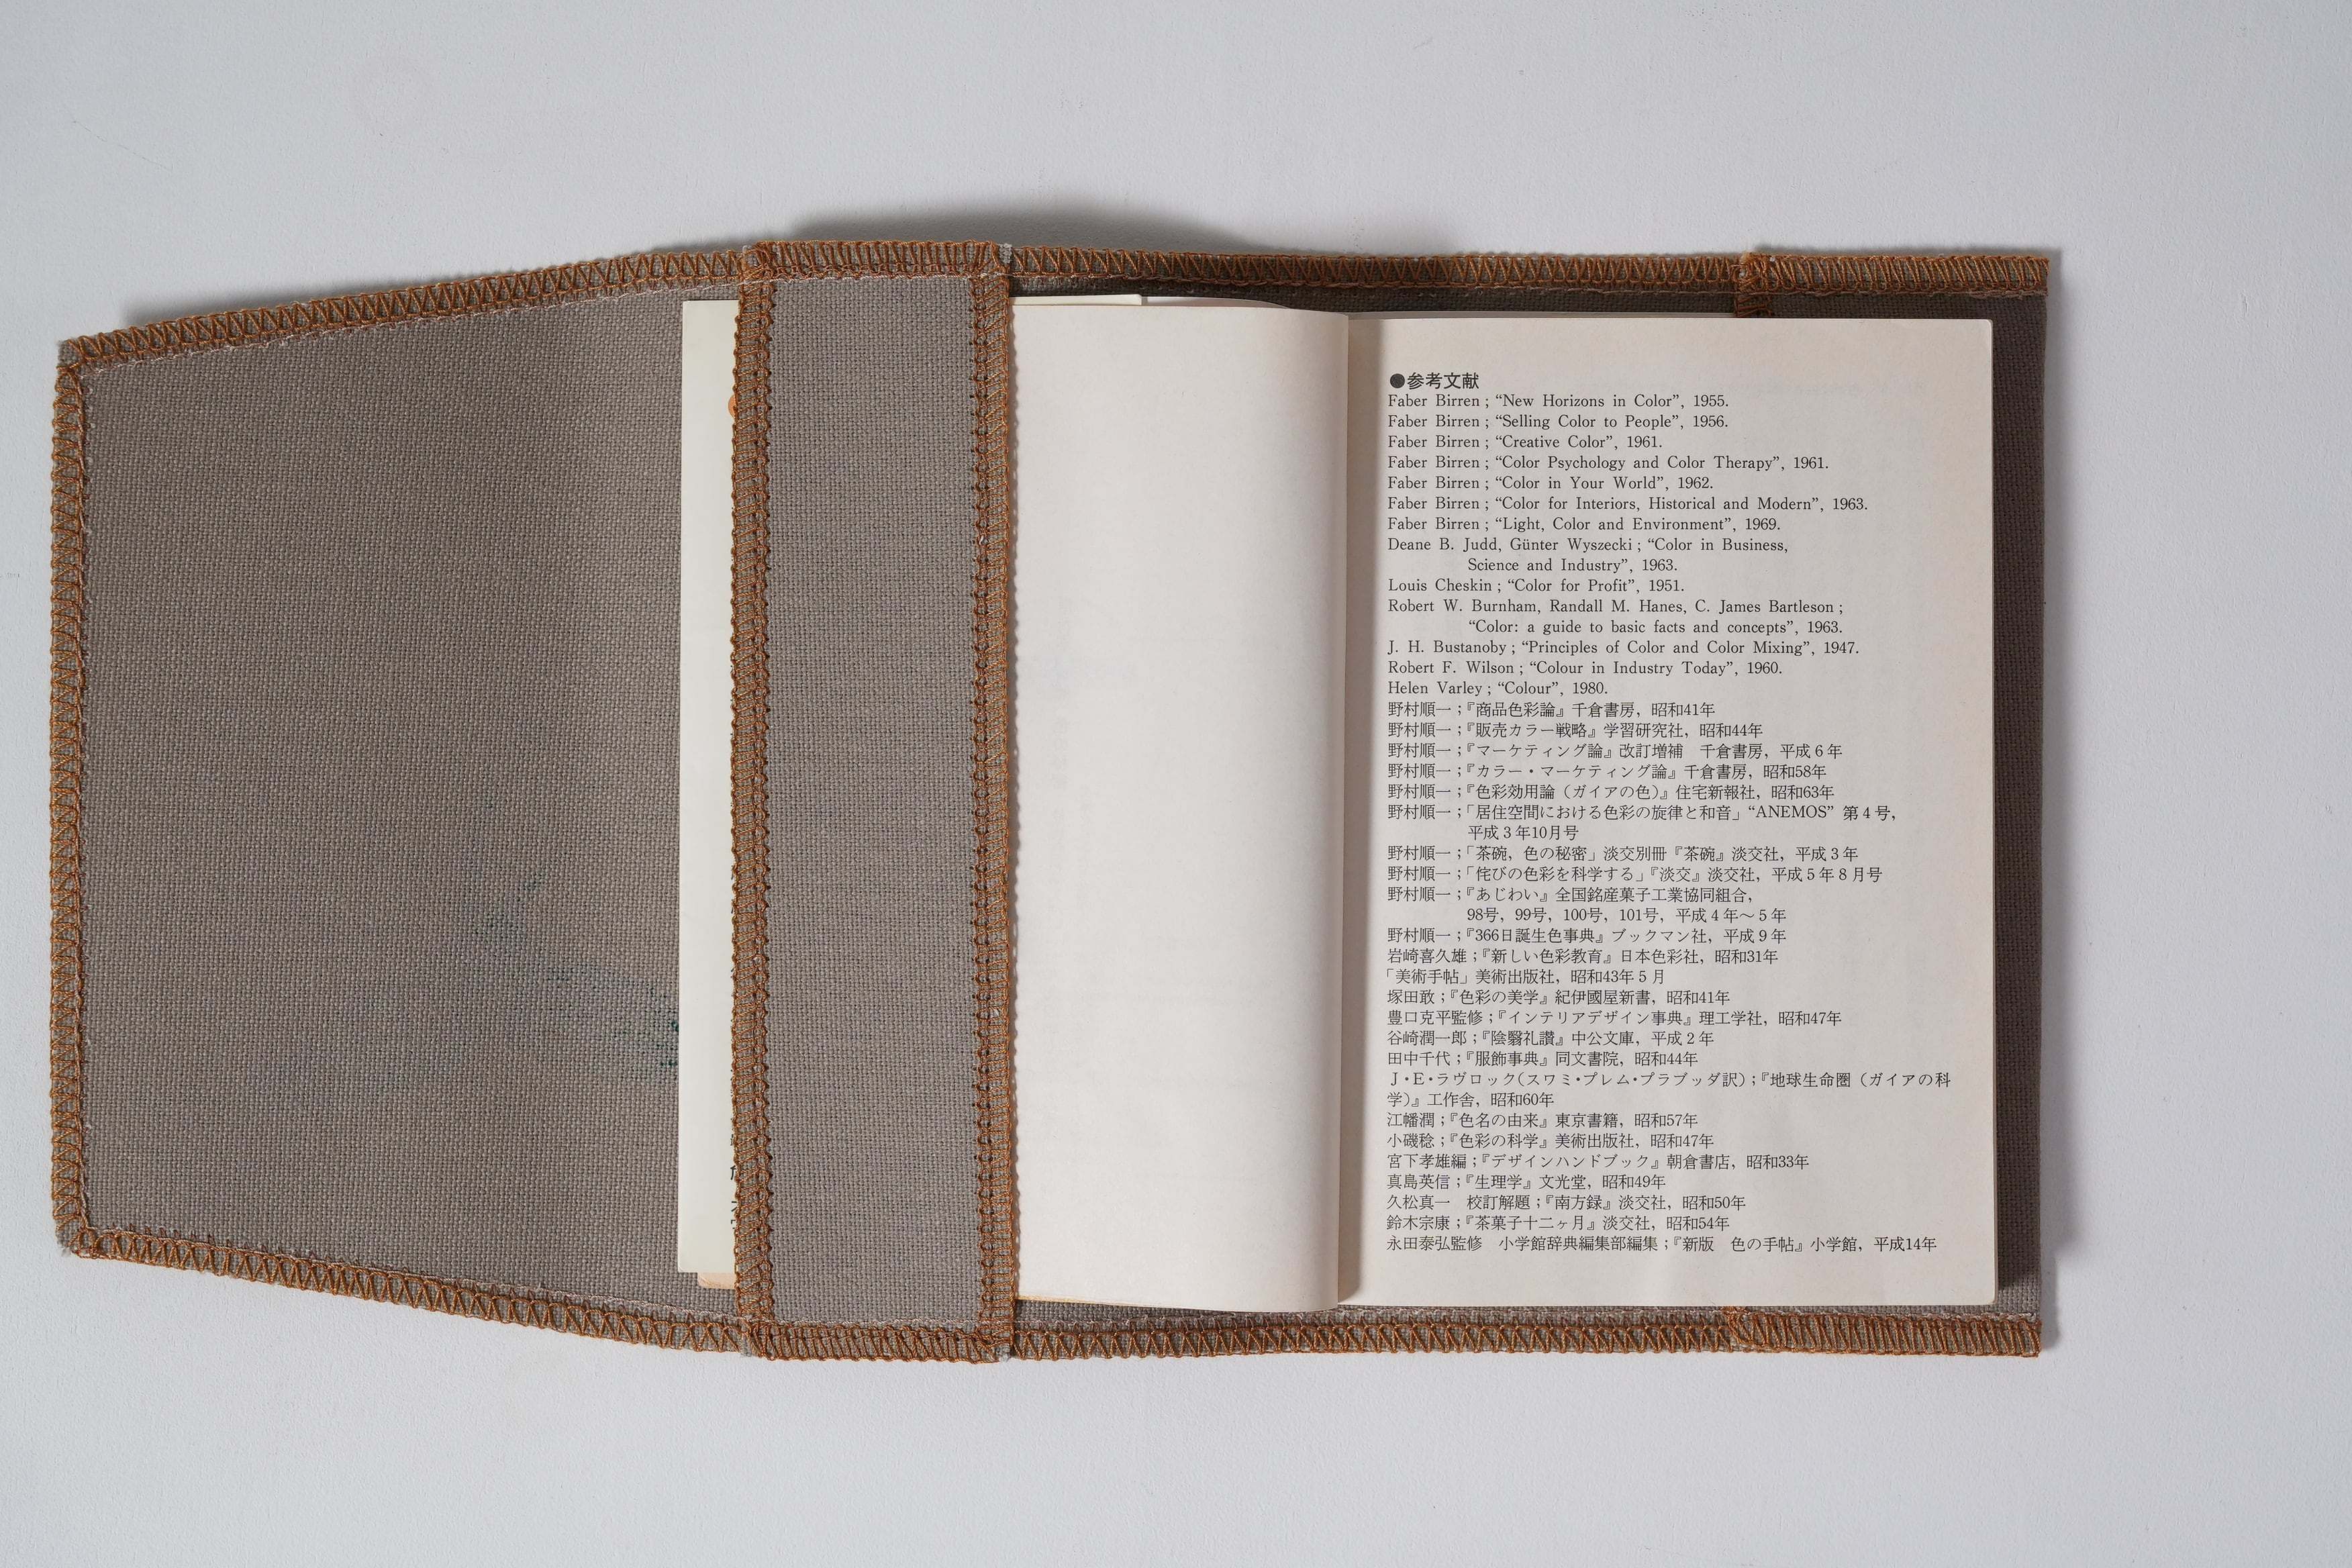 ●参考文献
Faber Birren ; “New Horizons in Color”, 1955.
Faber Birren ; “Selling Color to People”, 1956.
Faber Birren ; “Creative Color”, 1961.
Faber Birren ; “Color Psychology and Color Therapy”, 1961.
Faber Birren ; “Color in Your World”, 1962.
Faber Birren ; “Color for Interiors, Historical and Modern”, 1963.
Faber Birren ; “Light, Color and Environment”, 1969.
Deane B. Judd, Günter Wyszecki ; “Color in Business,
Science and Industry”, 1963.
Louis Cheskin ; “Color for Profit”, 1951.
Robert W. Burnham, Randall M. Hanes, C. James Bartleson ;
“Color: a guide to basic facts and concepts”, 1963.
J. H. Bustanoby ; “Principles of Color and Color Mixing”, 1947.
Robert F. Wilson ; “Colour in Industry Today”, 1960.
Helen Varley ; “Colour”, 1980.
野村順一；『商品色彩論』千倉書房，昭和41年
野村順一；『販売カラー戦略』学習研究社，昭和44年
野村順一；『マーケティング論』改訂増補　千倉書房，平成６年
野村順一；『カラー・マーケティング論』千倉書房，昭和58年
野村順一；『色彩効用論（ガイアの色）』住宅新報社，昭和63年
野村順一；「居住空間における色彩の旋律と和音」“ANEMOS” 第４号，
平成３年10月号
野村順一；「茶碗，色の秘密」淡交別冊『茶碗』淡交社，平成３年
野村順一；「侘びの色彩を科学する」『淡交』淡交社，平成５年８月号
野村順一；『あじわい』全国銘産菓子工業協同組合，
98号，99号，100号，101号，平成４年～５年
野村順一；『366日誕生色事典』ブックマン社，平成９年
岩崎喜久雄；『新しい色彩教育』日本色彩社，昭和31年
「美術手帖」美術出版社，昭和43年５月
塚田敢；『色彩の美学』紀伊國屋新書，昭和41年
豊口克平監修；『インテリアデザイン事典』理工学社，昭和47年
谷崎潤一郎；『陰翳礼讃』中公文庫，平成２年
田中千代；『服飾事典』同文書院，昭和44年
Ｊ・Ｅ・ラヴロック（スワミ・プレム・プラブッダ訳）；『地球生命圏（ガイアの科
学）』工作舎，昭和60年
江幡潤；『色名の由来』東京書籍，昭和57年
小磯稔；『色彩の科学』美術出版社，昭和47年
宮下孝雄編；『デザインハンドブック』朝倉書店，昭和33年
真島英信；『生理学』文光堂，昭和49年
久松真一　校訂解題；『南方録』淡交社，昭和50年
鈴木宗康；『茶菓子十二ヶ月』淡交社，昭和54年
永田泰弘監修　小学館辞典編集部編集；『新版　色の手帖』小学館，平成14年